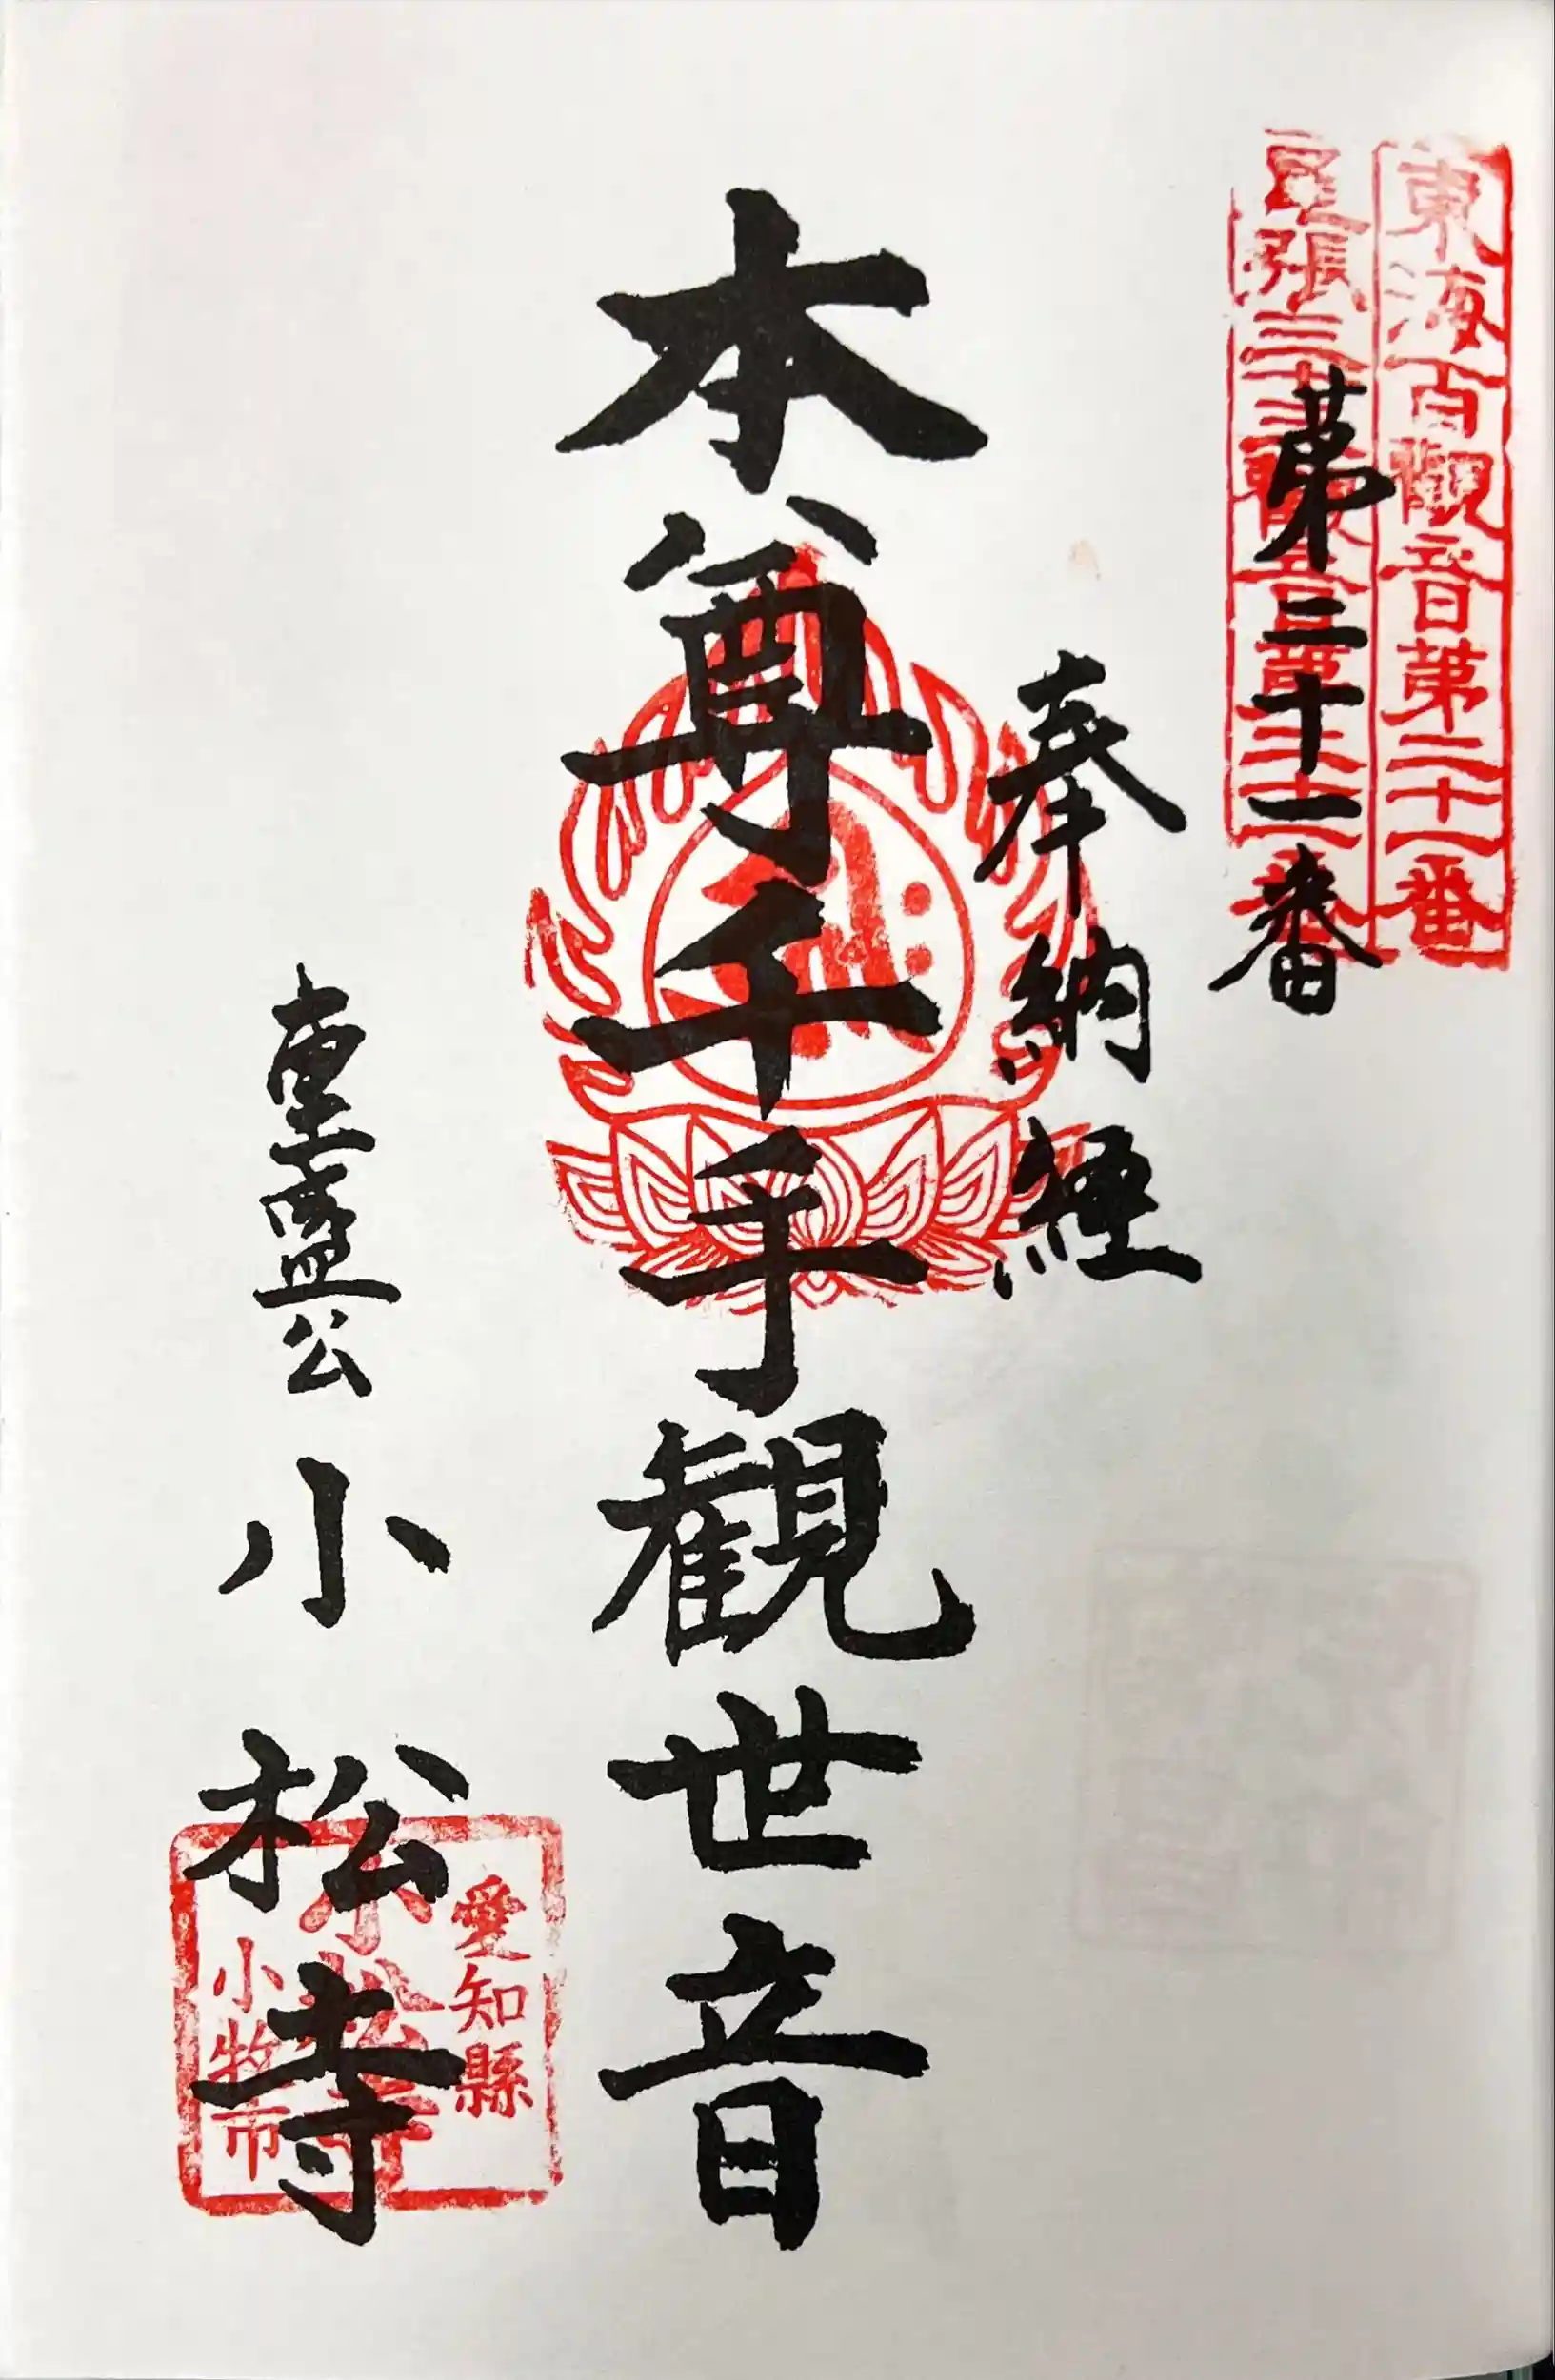 東海百観音第二十一番
尾張三十三観音第二十一番
第二十一番
奉納経
本尊千手観世音
重盛公
小松寺
愛知縣
小松寺
小牧市